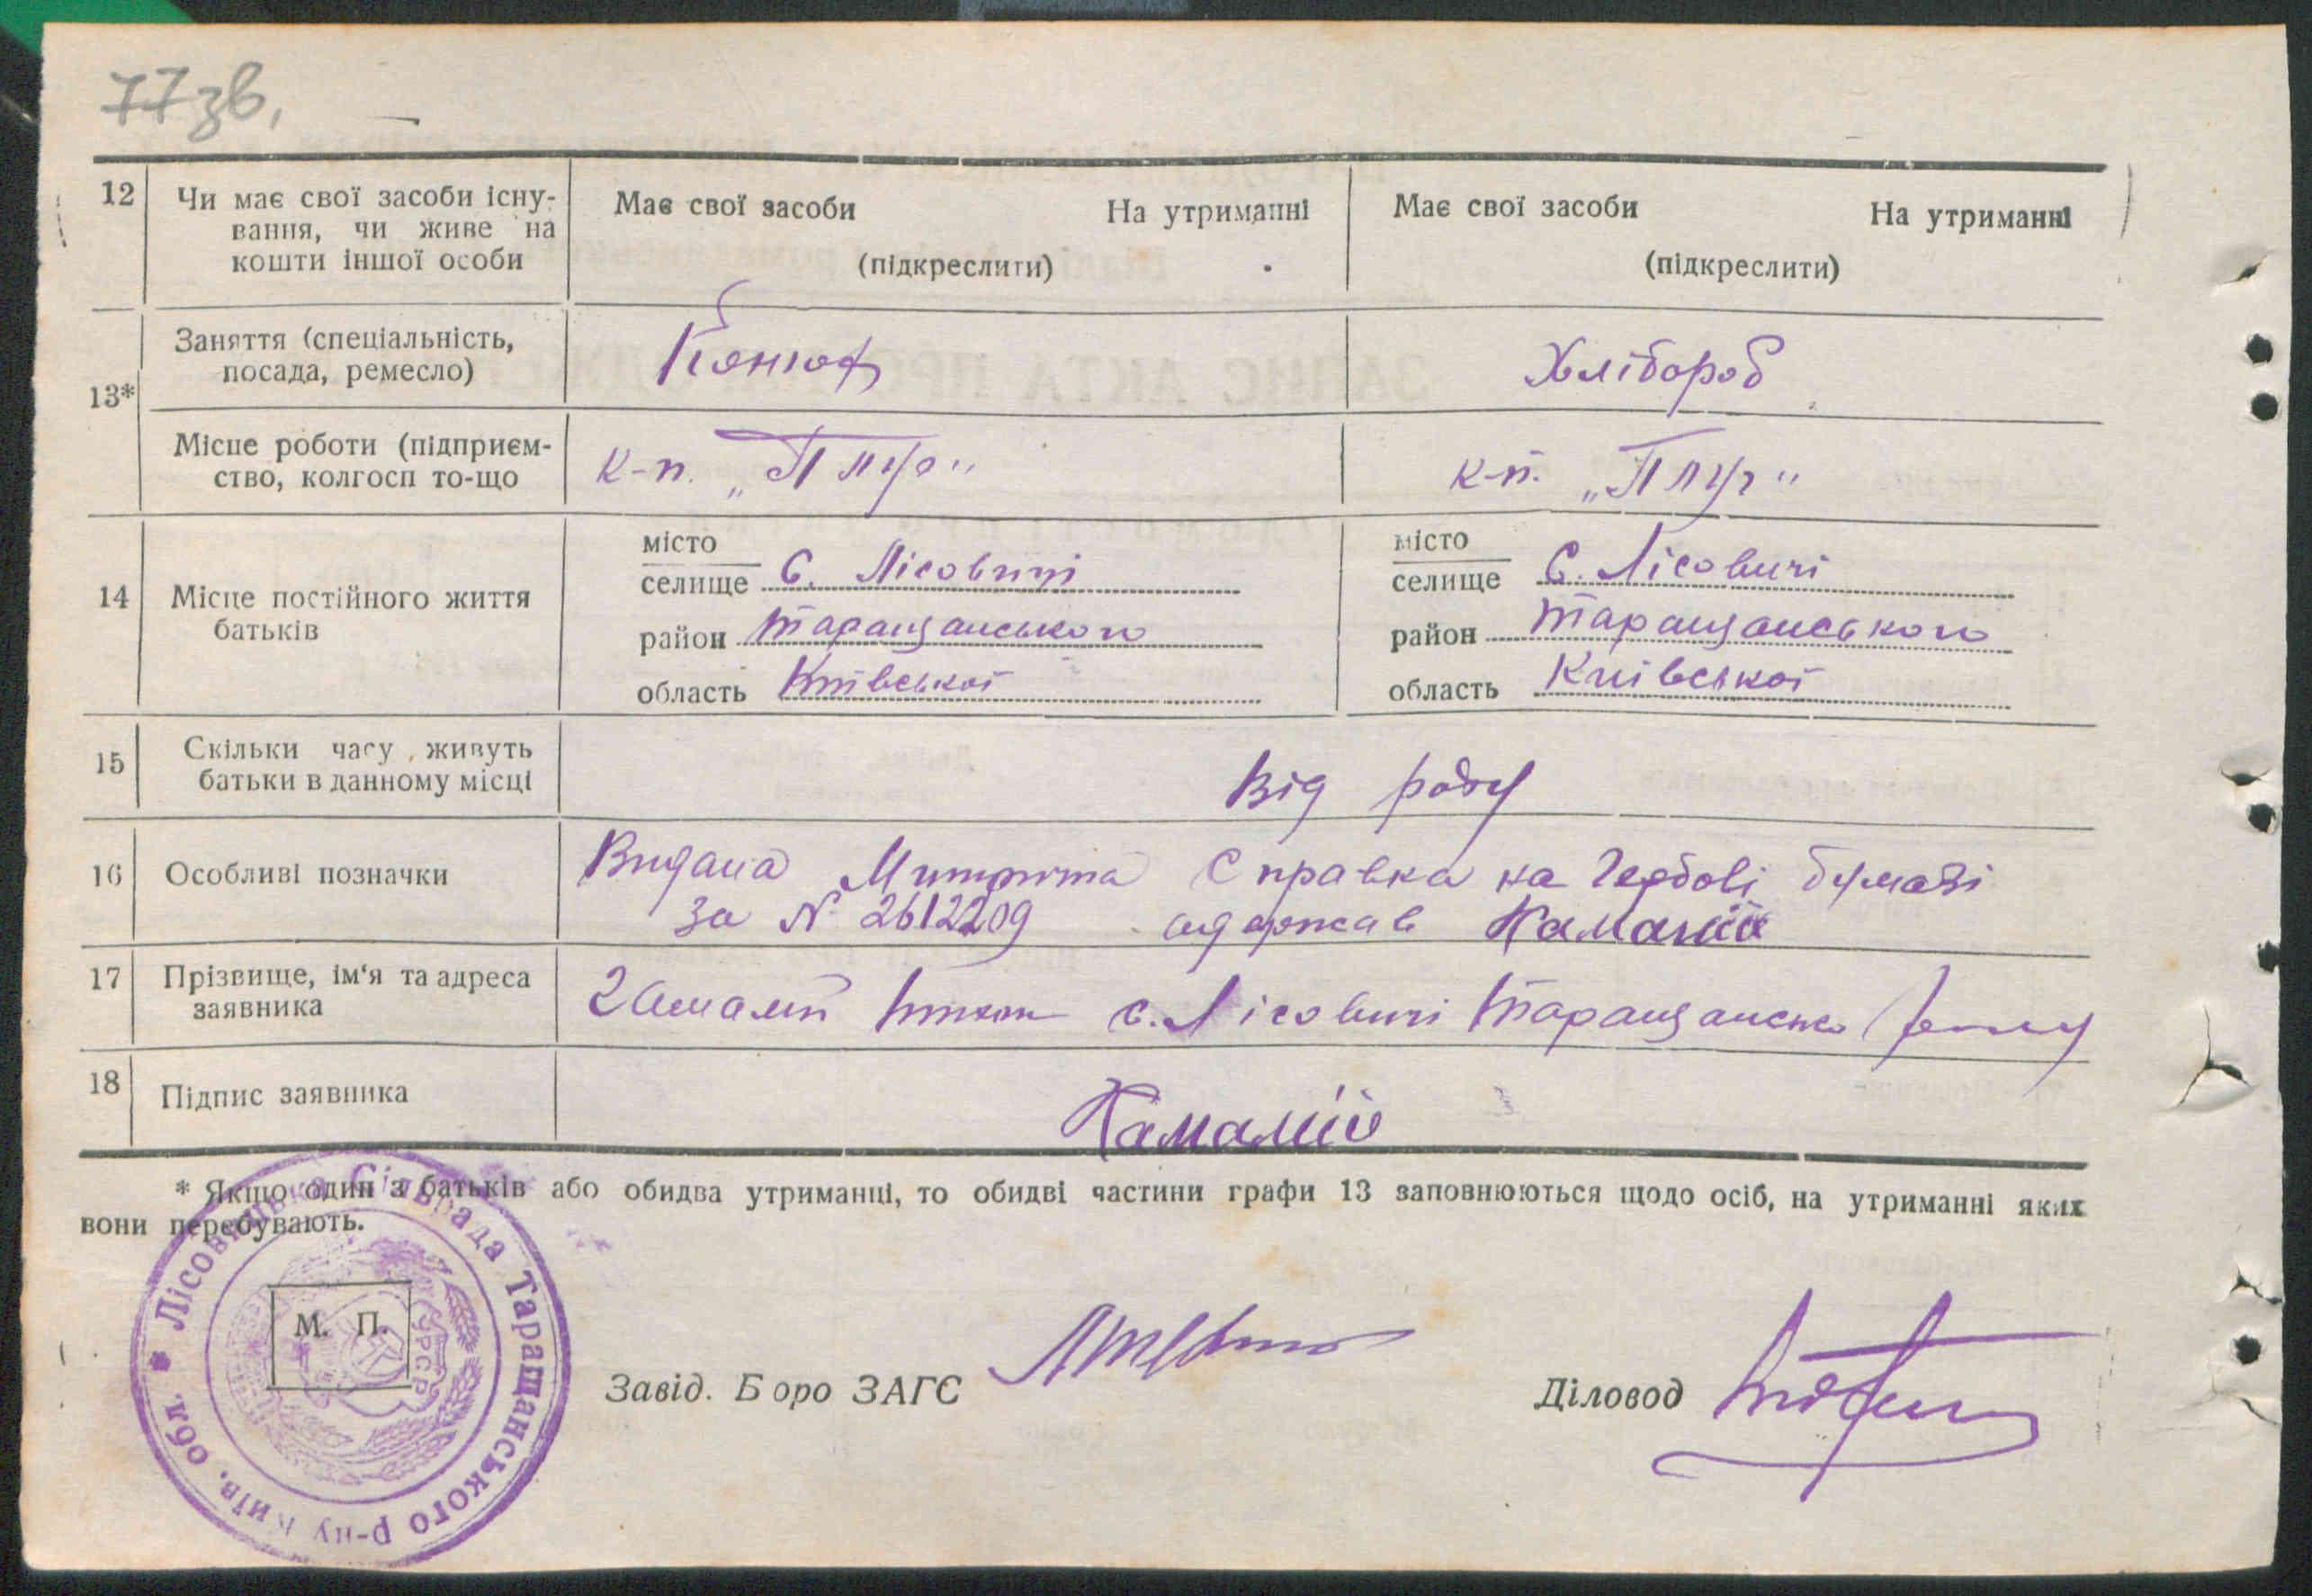 77 зв.
12 Чи має свої засоби існу-
вання, чи живе на
кошти іншої особи
Має свої засоби На утриманні
(підкреслити)
Має свої засоби На утриманні
(підкреслити)
13*
Заняття (спеціальність,
посада, ремесло)
Конюх
Хлібороб
Місце роботи (підприєм-
ство, колгосп то-що
к-п. „Плуг"
к-п. „Плуг"
14 Місце постійного життя
батьків
місто
селище С. Лісовичі
район Таращанського
область Київської
місто
селище С. Лісовичі
район Таращанського
область Київської
15 Скільки часу живуть
батьки в данному місці
Від роду
16 Особливі позначки
Видана Справка на Гербові бумазі
за № 2612209 одержав
17 Прізвище, ім'я та адреса
заявника
с. Лісовичі
18 Підпис заявника
* Якщо один з батьків або обидва утриманці, то обидві частини графи 13 заповнюються щодо осіб, на утриманні яких
вони перебувають.
Лісовицька Сільрада Таращанського р-ну Київ. обл.
УРСР
М. П.
Завід. Бюро ЗАГС
Діловод